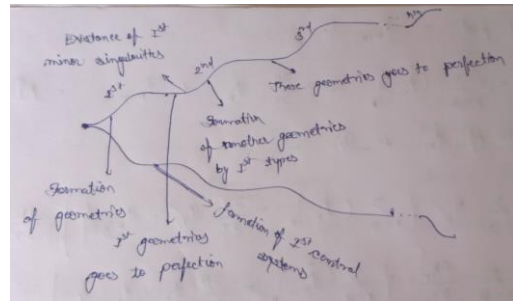 Existance of 1st
minor singularities
1st
2nd
3rd
These geometries goes to perfection
Formation
of another geometries
by 1st types
Formation
of geometries
1st geometries
goes to perfection
Formation of 1st control
systems